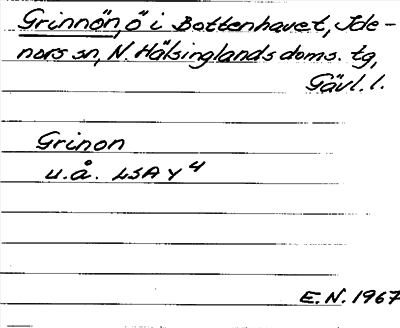 Grinnön, ö i Bottenhavet, Ide-
nors sn, N. Hälsinglands doms. tg,
Gävl. l.
Grinon
u.å. LSA Y 4
E.N. 1967